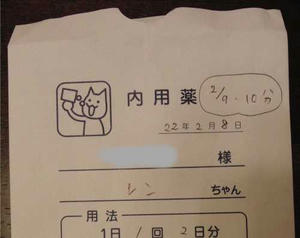 内用薬 2/9・10分
22年2月8日
様
シン ちゃん
用法
1日1回2日分